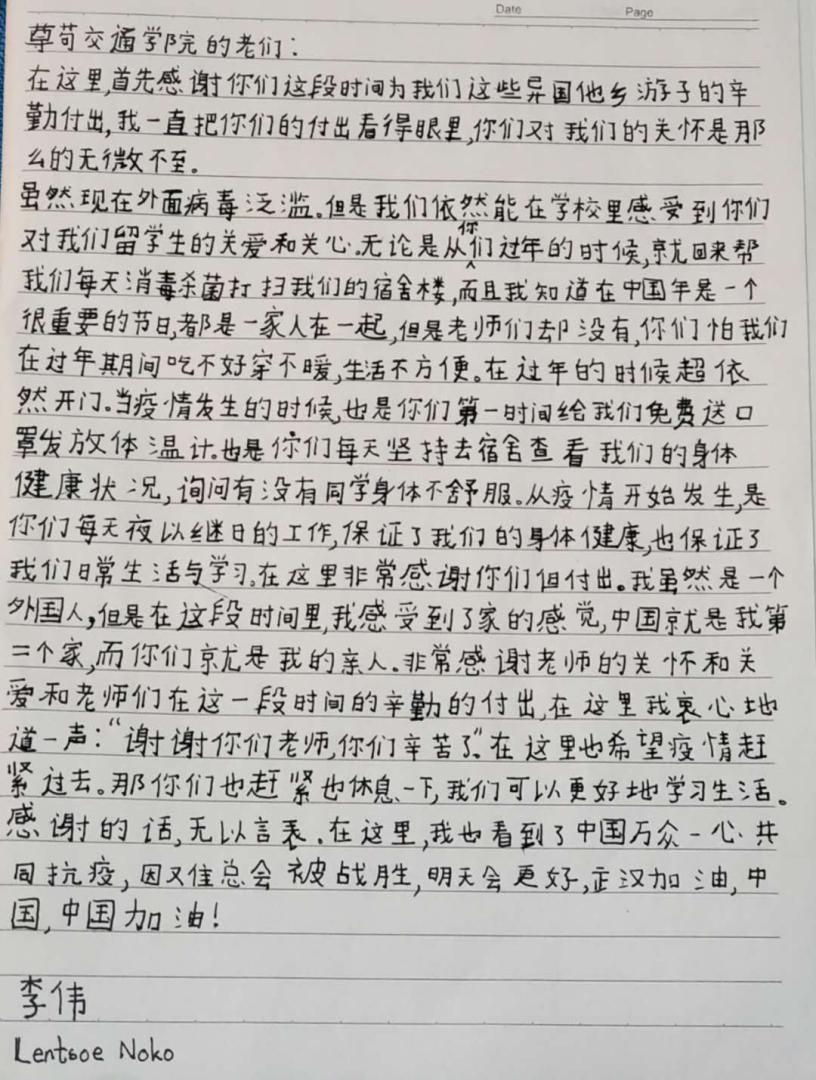 Date Page
草苟交通学院的老们：
在这里,首先感谢你们这段时间为我们这些异国他乡游子的辛
勤付出,我一直把你们的付出看得眼里,你们对我们的关怀是那
么的无微不至。
虽然现在外面病毒泛滥。但是我们依然能在学校里感受到你们
对我们留学生的关爱和关心.无论是从你们过年的时候,就回来帮
我们每天消毒杀菌打扫我们的宿舍楼,而且我知道在中国年是一个
很重要的节日,都是一家人在一起,但是老师们却没有,你们怕我们
在过年期间吃不好穿不暖,生活不方便。在过年的时候超依
然开门。当疫情发生的时候,也是你们第一时间给我们免费送口
罩发放体温计.也是你们每天坚持去宿舍查看我们的身体
健康状况,询问有没有同学身体不舒服。从疫情开始发生,是
你们每天夜以继日的工作,保证了我们的身体健康,也保证了
我们日常生活与学习.在这里非常感谢你们但付出。我虽然是一个
外国人,但是在这段时间里,我感受到了家的感觉,中国就是我第
二个家,而你们就是我的亲人.非常感谢老师的关怀和关
爱和老师们在这一段时间的辛勤的付出,在这里我衷心地
道一声:“谢谢你们老师,你们辛苦了”.在这里也希望疫情赶
紧过去。那你们也赶紧也休息一下,我们可以更好地学习生活。
感谢的话,无以言表.在这里,我也看到了中国万众一心共
同抗疫,因又佳总会被战胜,明天会更好,武汉加油,中
国,中国加油!
李伟
Lentsoe Noko